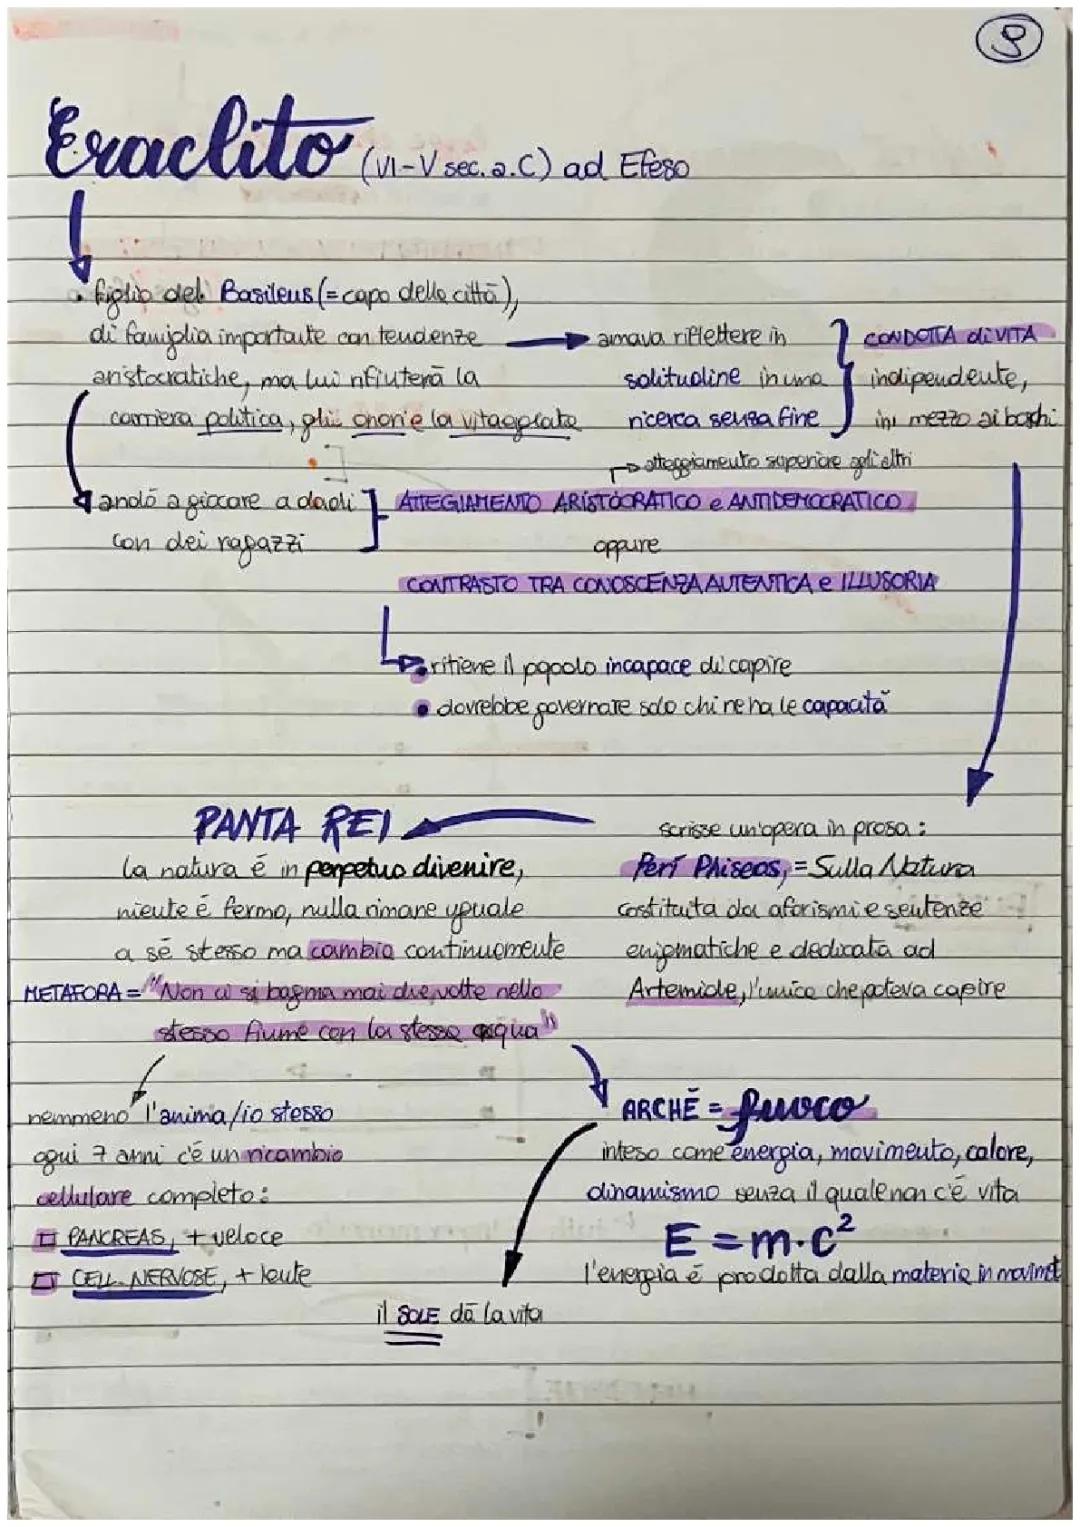 9
Eraclito (VI-V sec. a.C) ad Efeso
• figlio del Basileus (= capo della città),
di famiglia importante con tendenze
aristocratiche, ma lui rifiuterà la
carriera politica, gli onori e la vita agiata
amava riflettere in
solitudine in una
ricerca senza fine
CONDOTTA di VITA
indipendente,
in mezzo ai boschi
andò a giocare a dadi
con dei ragazzi
atteggiamento superiore agli altri
ATTEGIAMENTO ARISTOCRATICO e ANTIDEMOCRATICO
oppure
CONTRASTO TRA CONOSCENZA AUTENTICA e ILLUSORIA
• ritiene il popolo incapace di capire
• dovrebbe governare solo chi ne ha le capacità
scrisse un'opera in prosa:
Perì Phiseos, = Sulla Natura
costituita da aforismi e sentenze
enigmatiche e dedicata ad
Artemide, l'unica che poteva capire
PANTA REI
la natura è in perpetuo divenire,
niente è fermo, nulla rimane uguale
a sé stesso ma cambia continuamente
METAFORA = "Non ci si bagna mai due volte nello
stesso fiume con la stessa acqua"
nemmeno l'anima/io stesso
ogni 7 anni c'è un ricambio
cellulare completo:
PANCREAS, + veloce
CELL. NERVOSE, + lente
ARCHÈ = fuoco
inteso come energia, movimento, calore,
dinamismo senza il quale non c'è vita
E = m·c²
l'energia è prodotta dalla materia in movimet
il SOLE dà la vita